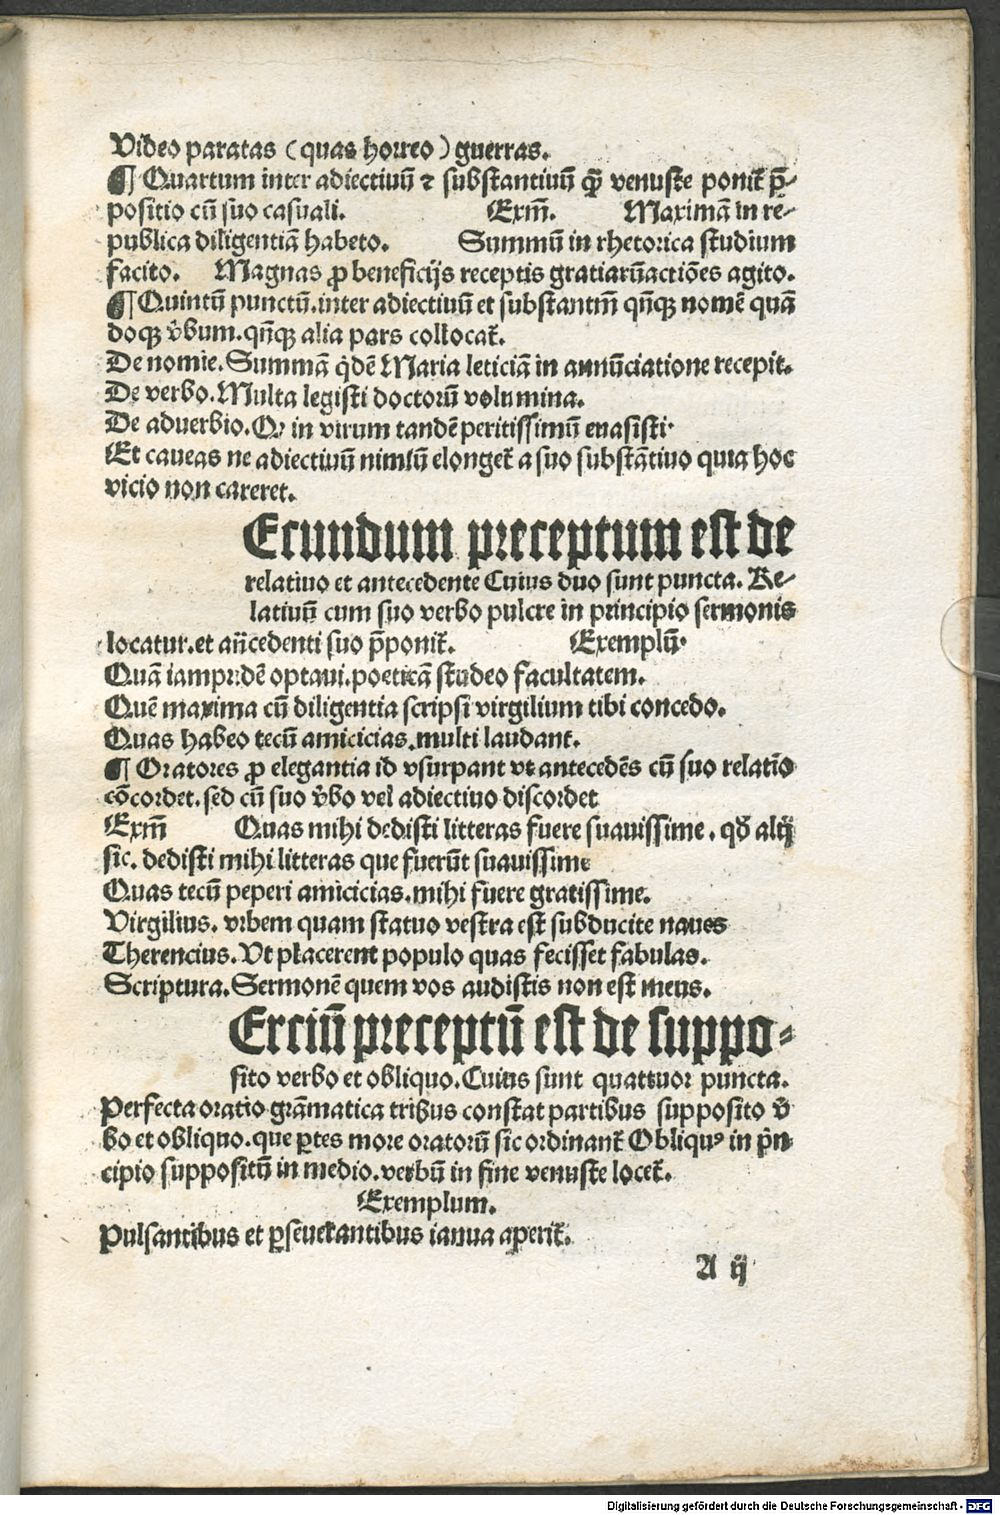 Video paratas (quas horreo) guerras.
¶ Quartum inter adiectiuū ⁊ substantiuū qꝫ̄ venuste poniť p̄-
positio cū suo casuali. Exm̄. Maximā in re-
publica diligentiā habeto. Summū in rhetorica studium
facito. Magnas ꝓ beneficijs receptis gratiarūactiōes agito.
¶ Quintū punctū. inter adiectiuū et substantm̄ qn̄qꝫ nomē quā
doqꝫ v̄bum. qn̄qꝫ alia pars collocať.
De nomie. Summā q̇dē Maria leticiā in annūciatione recepit.
De verbo. Multa legisti doctorū volumina.
De aduerbio. Qꝫ in virum tandē peritissimū euasisti.
Et caueas ne adiectiuū nimiū elongeť a suo substātiuo quia hoc
vicio non careret.
Ecundum preceptum est de
relatiuo et antecedente Cuius duo sunt puncta. Re-
latiuū cum suo verbo pulcre in principio sermonis
locatur. et an̄cedenti suo p̄poniť. Exemplū.
Quā iampridē optaui. poeticā studeo facultatem.
Quē maxima cū diligentia scripsi virgilium tibi concedo.
Quas habeo tecū amicicias. multi laudant.
¶ Oratores ꝓ elegantia id vsurpant vt antecedēs cū suo relatīo
cōcordet. sed cū suo v̄bo vel adiectiuo discordet
Exm̄ Quas mihi dedisti litteras fuere suauissime. qď alij
sic. dedisti mihi litteras que fuerūt suauissime
Quas tecū peperi amicicias. mihi fuere gratissime.
Virgilius. vrbem quam statuo vestra est subducite naues
Therencius. Vt placerent populo quas fecisset fabulas.
Scriptura. Sermonē quem vos audistis non est meus.
Erciū preceptū est de suppo-
sito verbo et obliquo. Cuius sunt quattuor puncta.
Perfecta oratio grāmatica tribus constat partibus supposito v̄
bo et obliquo. que ꝑtes more oratorū sic ordinanť Obliquꝰ in p̄n
cipio suppositū in medio. verbū in fine venuste loceť.
Exemplum.
Pulsantibus et ꝑseuerantibus ianua aperiť.
A ij
Digitalisierung gefördert durch die Deutsche Forschungsgemeinschaft - DFG